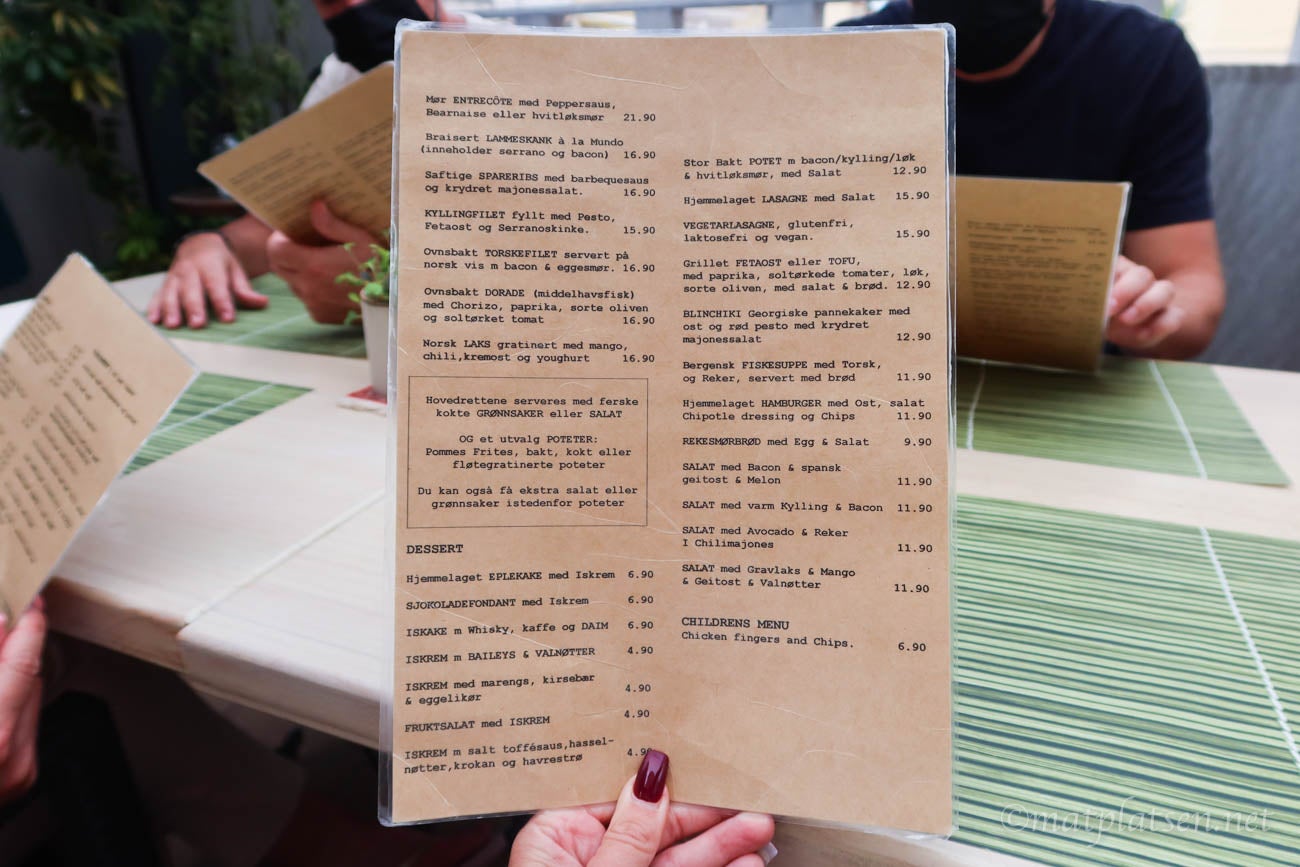 Mør ENTRECÔTE med Peppersaus,
Bearnaise eller hvitløksmør 21.90
Braisert LAMMESKANK à la Mundo
(inneholder serrano og bacon) 16.90
Saftige SPARERIBS med barbequesaus
og krydret majonessalat. 16.90
KYLLINGFILET fyllt med Pesto,
Fetaost og Serranoskinke. 15.90
Ovnsbakt TORSKEFILET servert på
norsk vis m bacon & eggesmør. 16.90
Ovnsbakt DORADE (middelhavsfisk)
med Chorizo, paprika, sorte oliven
og soltørket tomat 16.90
Norsk LAKS gratinert med mango,
chili,kremost og youghurt 16.90
Hovedrettene serveres med ferske
kokte GRØNNSAKER eller SALAT
OG et utvalg POTETER:
Pommes Frites, bakt, kokt eller
fløtegratinerte poteter
Du kan også få ekstra salat eller
grønnsaker istedenfor poteter
DESSERT
Hjemmelaget EPLEKAKE med Iskrem 6.90
SJOKOLADEFONDANT med Iskrem 6.90
ISKAKE m Whisky, kaffe og DAIM 6.90
ISKREM m BAILEYS & VALNØTTER 4.90
ISKREM med marengs, kirsebær
& eggelikør 4.90
FRUKTSALAT med ISKREM 4.90
ISKREM m salt toffésaus,hassel-
nøtter,krokan og havrestrø 4.90
Stor Bakt POTET m bacon/kylling/løk
& hvitløksmør, med Salat 12.90
Hjemmelaget LASAGNE med Salat 15.90
VEGETARLASAGNE, glutenfri,
laktosefri og vegan. 15.90
Grillet FETAOST eller TOFU,
med paprika, soltørkede tomater, løk,
sorte oliven, med salat & brød. 12.90
BLINCHIKI Georgiske pannekaker med
ost og rød pesto med krydret
majonessalat 12.90
Bergensk FISKESUPPE med Torsk,
og Reker, servert med brød 11.90
Hjemmelaget HAMBURGER med Ost, salat
Chipotle dressing og Chips 11.90
REKESMØRBRØD med Egg & Salat 9.90
SALAT med Bacon & spansk
geitost & Melon 11.90
SALAT med varm Kylling & Bacon 11.90
SALAT med Avocado & Reker
I Chilimajones 11.90
SALAT med Gravlaks & Mango
& Geitost & Valnøtter 11.90
CHILDRENS MENU
Chicken fingers and Chips. 6.90
©matplatsen.net